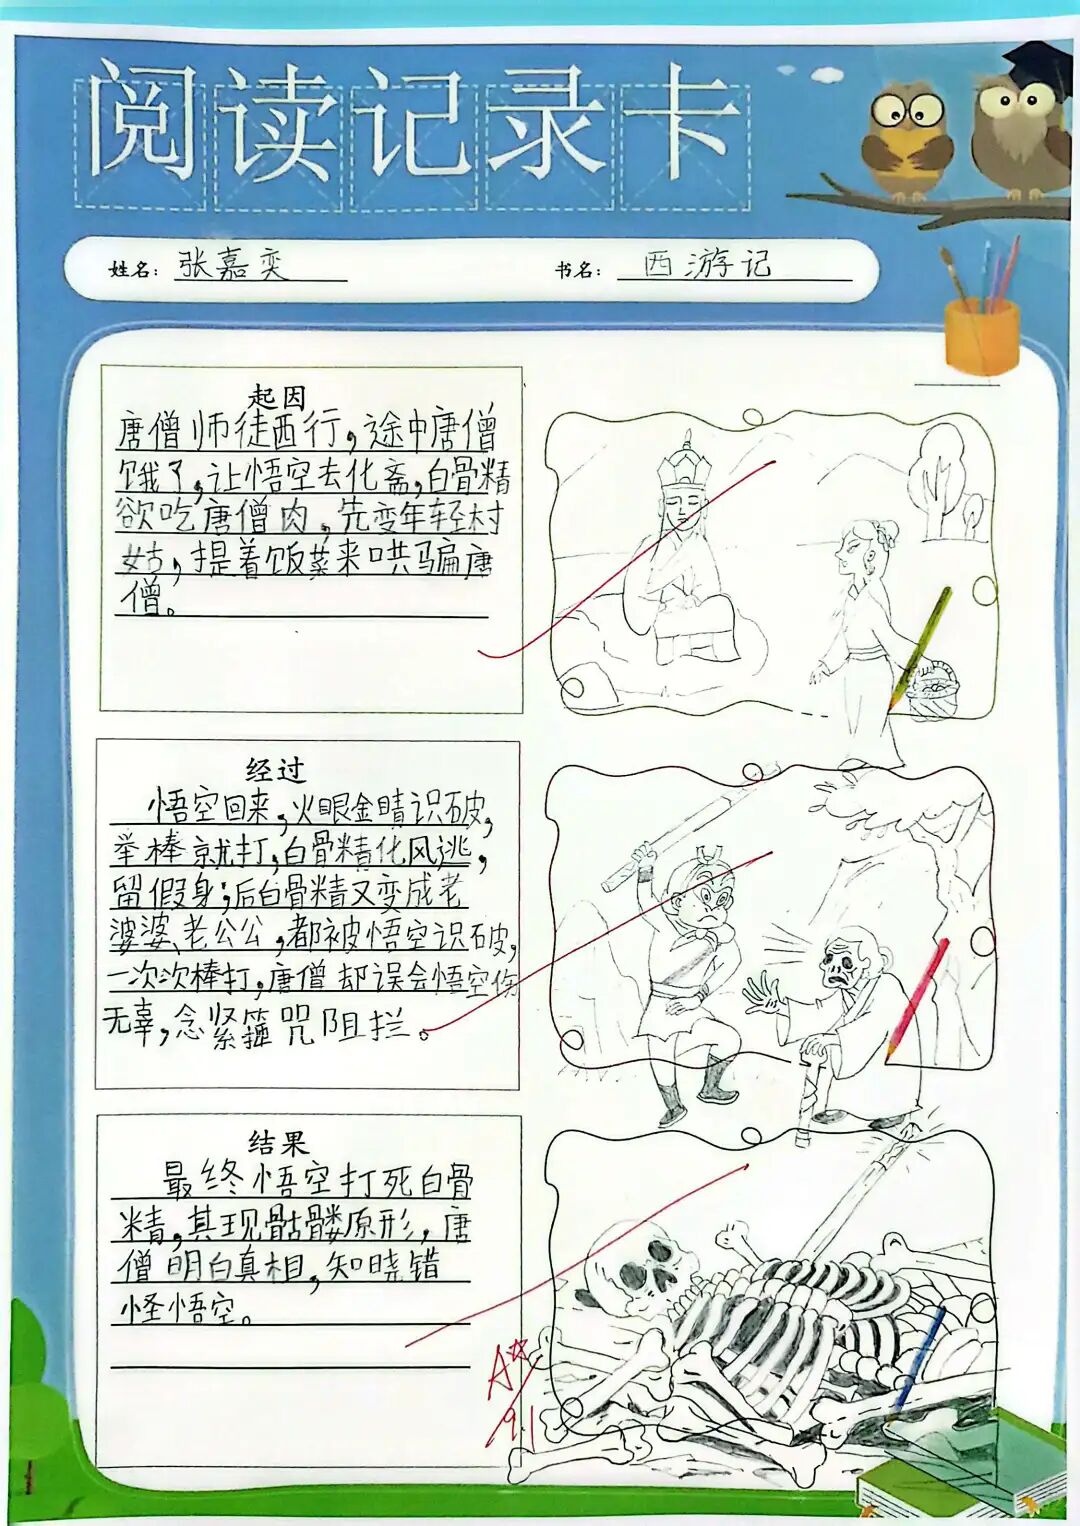 阅读记录卡
姓名：张嘉奕 书名：西游记
起因
唐僧师徒西行，途中唐僧
饿了，让悟空去化斋，白骨精
欲吃唐僧肉，先变年轻村
姑，提着饭菜来哄骗唐
僧。
经过
悟空回来，火眼金睛识破，
举棒就打，白骨精化风逃，
留假身；后白骨精又变成老
婆婆、老公公，都被悟空识破，
一次次棒打，唐僧却误会悟空伤
无辜，念紧箍咒阻拦。
结果
最终悟空打死白骨
精，其现骷髅原形，唐
僧明白真相，知晓错
怪悟空。
A☆
9.1